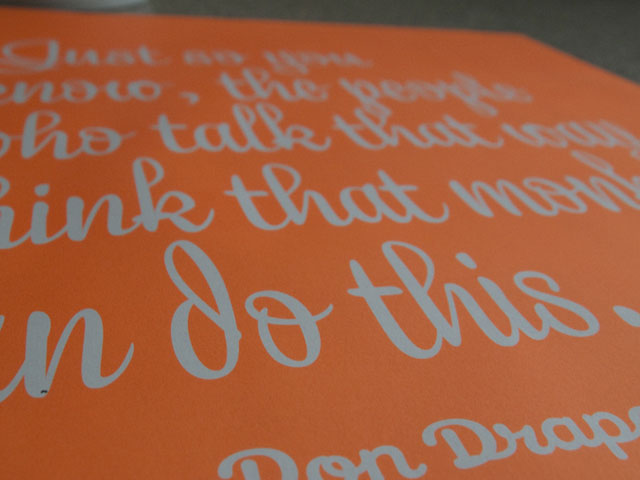 Just so you
know, the people
who talk that way
think that monk
an do this.
Don Drape